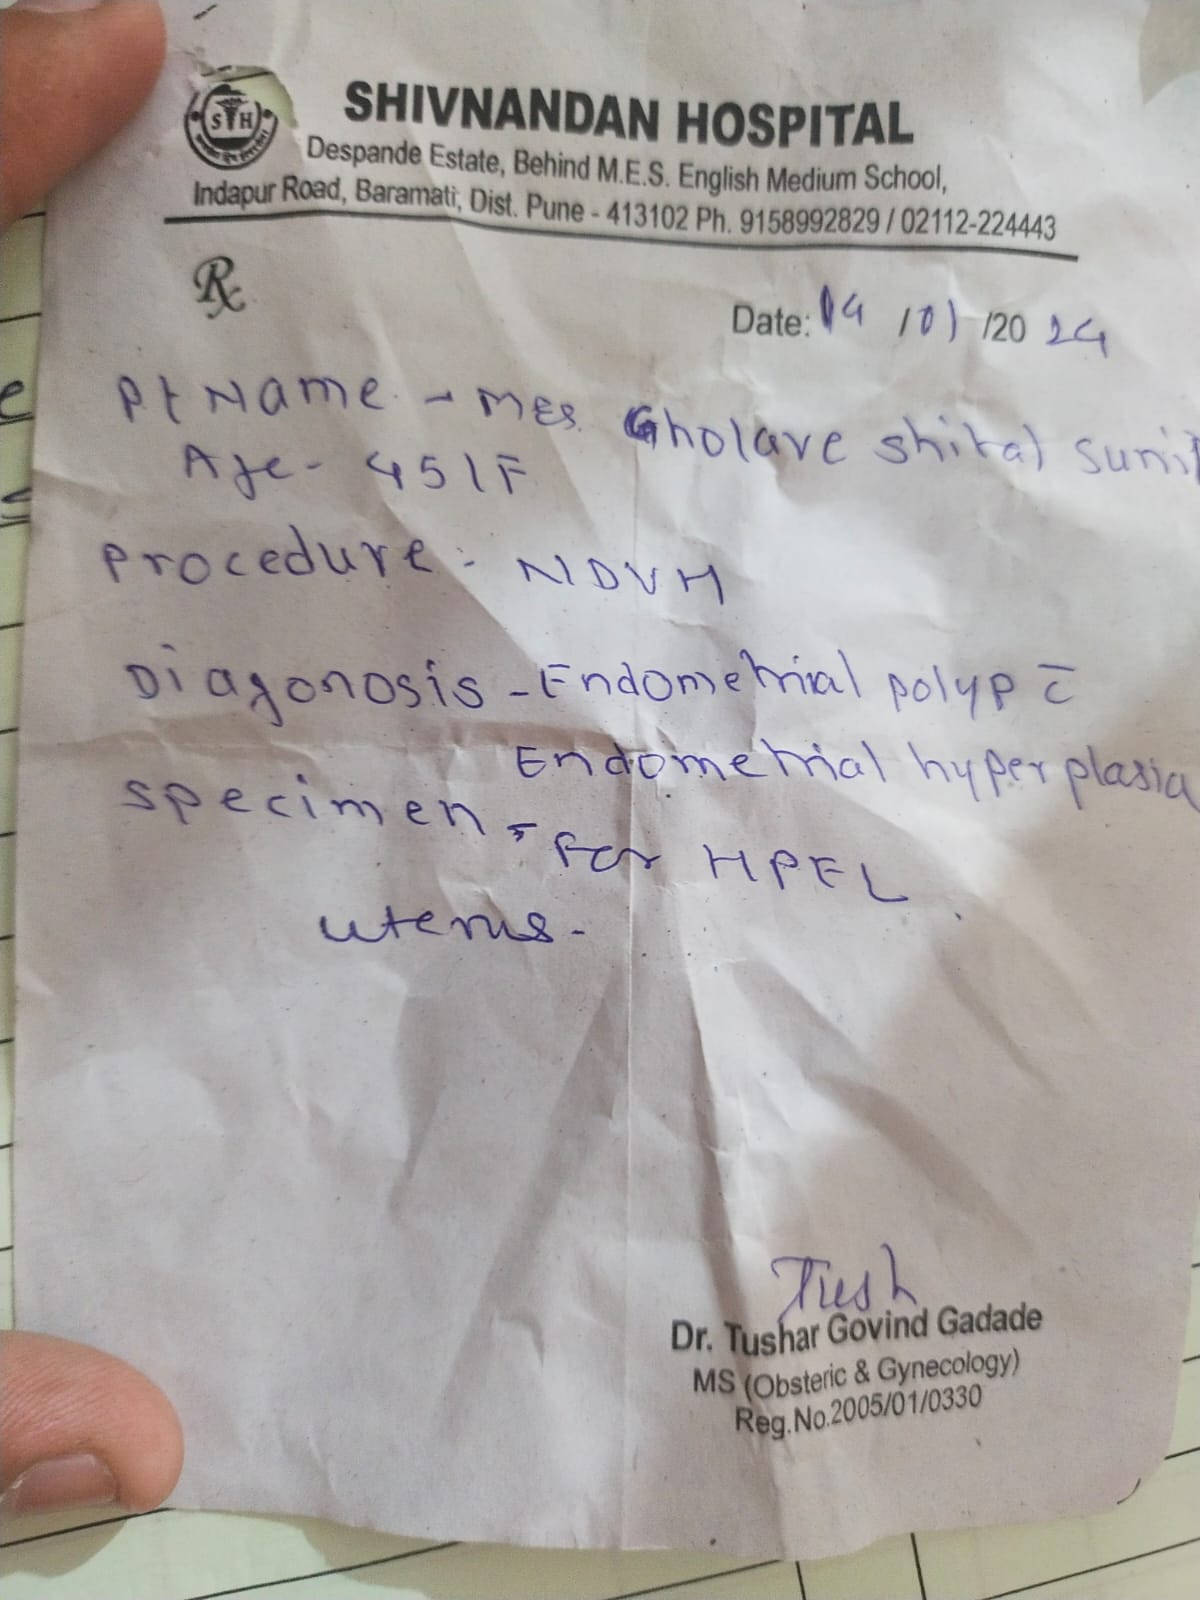 SHIVNANDAN HOSPITAL
Despande Estate, Behind M.E.S. English Medium School,
Indapur Road, Baramati, Dist. Pune - 413102 Ph. 9158992829 / 02112-224443
S H
Rx
Date: 14 /01 /20 24
Pt Name - Mrs. Gholave Shital Sunil
Age - 45 / F
Procedure - NDVH
Diagonosis - Endometrial polyp c̄
Endometrial hyperplasia
specimen - For HPEL
uterus -
Tush
Dr. Tushar Govind Gadade
MS (Obsteric & Gynecology)
Reg.No.2005/01/0330